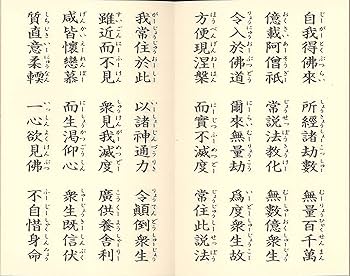 自我得佛來 所經諸劫數 無量百千萬
億載阿僧祇 常說法教化 無數億衆生
令入於佛道 爾來無量劫 爲度衆生故
方便現涅槃 而實不滅度 常住此說法
我常住於此 以諸神通力 令顛倒衆生
雖近而不見 衆見我滅度 廣供養舍利
咸皆懷戀慕 而生渴仰心 衆生既信伏
質直意柔輭 一心欲見佛 不自惜身命